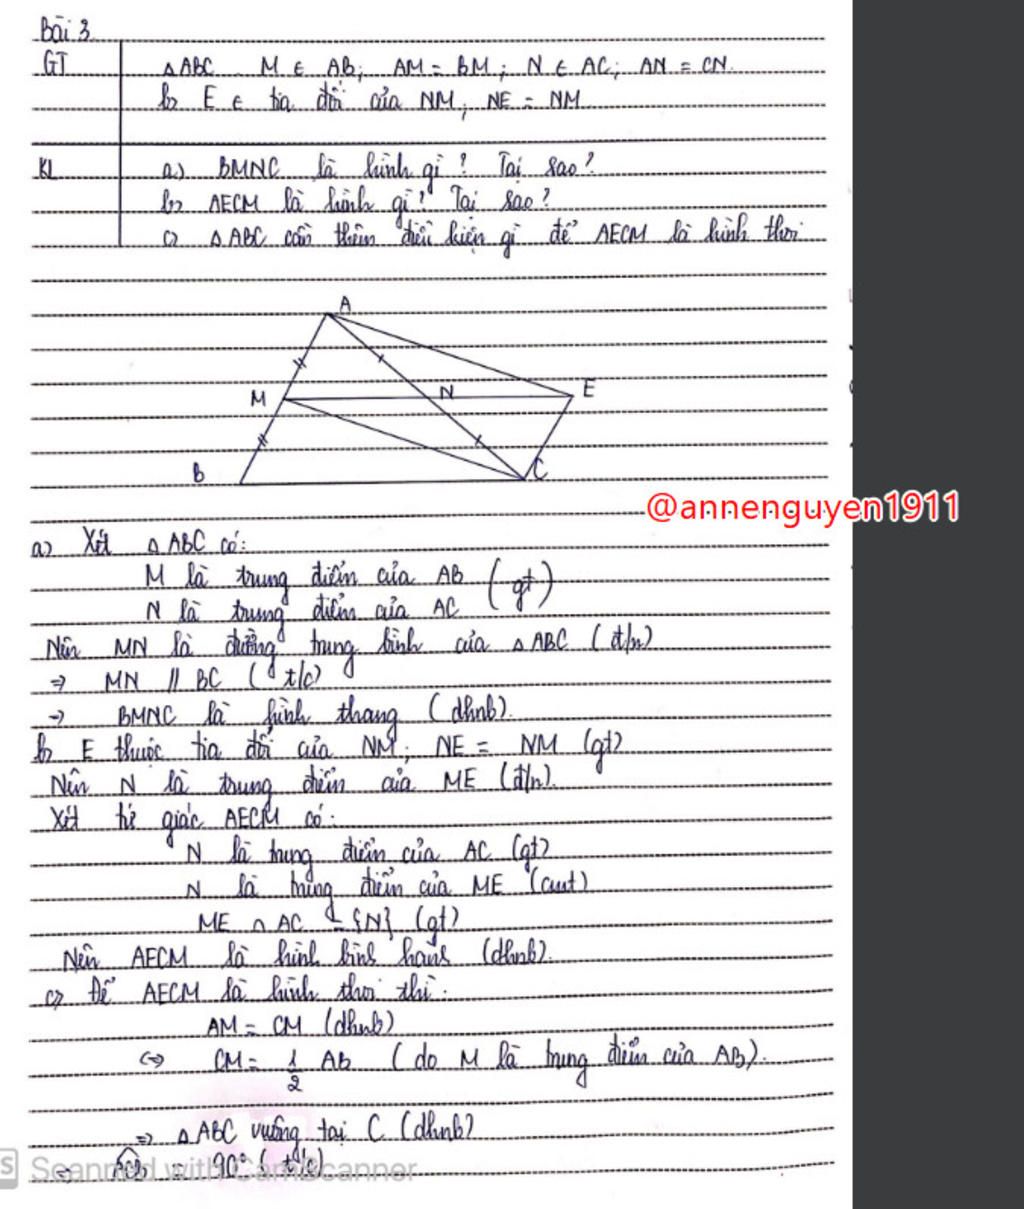 Bài 3
GT
△ABC M ∈ AB; AM = BM; N ∈ AC; AN = CN
b> E ∈ tia đối của NM, NE = NM
KL
a.) BMNC là hình gì? Tại sao?
b> AECM là hình gì? Tại sao?
c> △ABC cần thêm điều kiện gì để AECM là hình thoi
A
M
N
E
B
C
@annenguyen1911
a> Xét △ABC có:
M là trung điểm của AB (gt)
N là trung điểm của AC
Nên MN là đường trung bình của △ABC (đ/n)
=> MN // BC (t/c)
=> BMNC là hình thang (dhnb).
b> E thuộc tia đối của NM; NE = NM (gt)
Nên N là trung điểm của ME (đ/n).
Xét tứ giác AECM có:
N là trung điểm của AC (gt)
N là trung điểm của ME (cmt)
ME ∩ AC = {N} (gt)
Nên AECM là hình bình hành (dhnb).
c> Để AECM là hình thoi thì:
AM = CM (dhnb)
<=> CM = 1/2 AB (do M là trung điểm của AB).
=> △ABC vuông tại C (dhnb)
=> = 90° (t/c)
Scanned with CamScanner